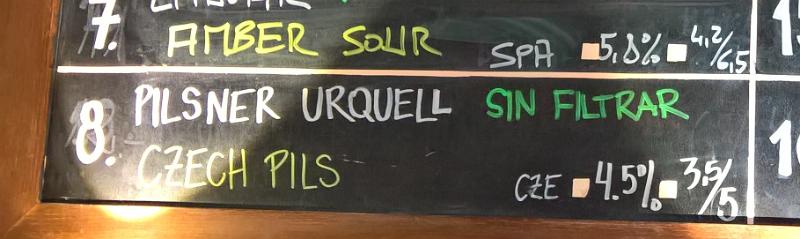 7.
AMBER SOUR SPA 5,8% 4,2/6,5
8. PILSNER URQUELL SIN FILTRAR
CZECH PILS CZE 4.5% 3.5/5